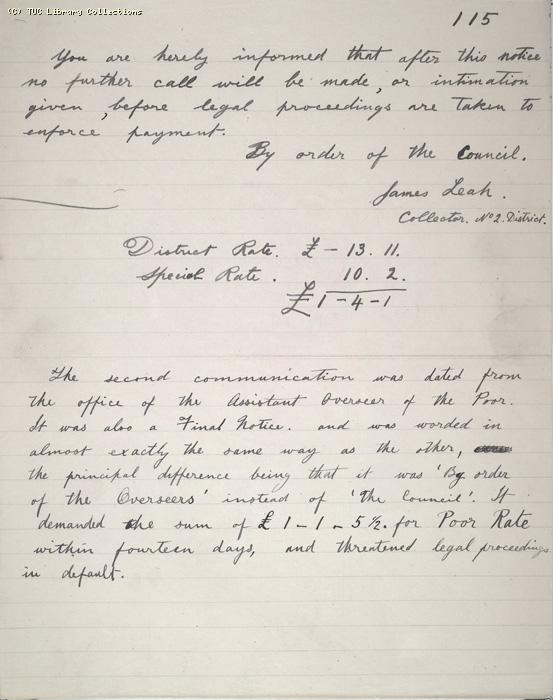 (C) TUC Library Collections
115
You are hereby informed that after this notice
no further call will be made, or intimation
given, before legal proceedings are taken to
enforce payment.
By order of the Council.
James Leah.
Collector. No 2. District.
District Rate. £ - 13. 11.
Special Rate. 10. 2.
£1 - 4 - 1
The second communication was dated from
the office of the Assistant Overseer of the Poor.
It was also a Final Notice. and was worded in
almost exactly the same way as the other,
the principal difference being that it was 'By order
of the Overseers' instead of 'the Council'. It
demanded the sum of £1 - 1 - 5½. for Poor Rate
within fourteen days, and threatened legal proceedings
in default.